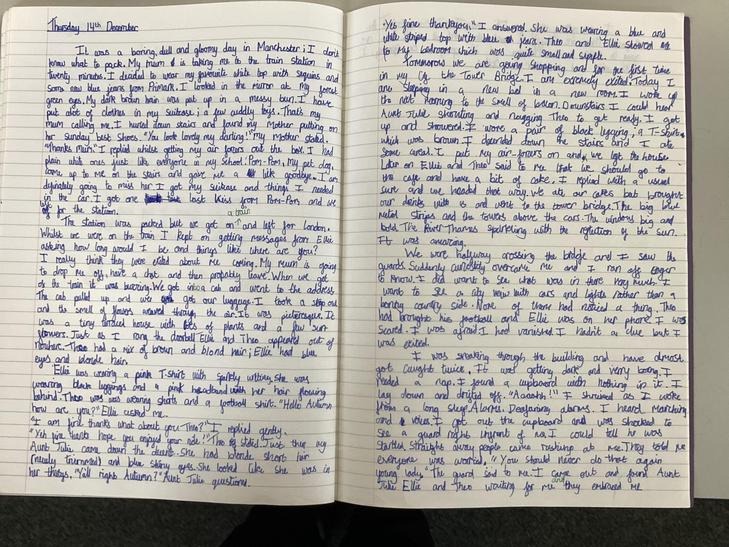 Thursday 14th December
It was a boring, dull and gloomy day in Manchester; I don't
know what to pack. My mum is taking me to the train station in
twenty minutes. I decided to wear my favourite white top with sequins and
some new blue jeans from Primark. I looked in the mirror at my forest
green eyes. My dark brown hair was put up in a messy bun. I have
put alot of clothes in my suitcase; a few cuddly toys. That's my
mum calling me. I hurried down stairs and found my Mother putting on
her Sunday best shoes. "You look lovely my darling!" my mother stated.
"Thanks mum." I replied whilst getting my air forces out the box. I had
plain white ones just like everyone in my school. Pom-Pom, my pet dog,
came up to me on the stairs and gave me a lik goodbye. I am
definately going to miss her. I got my suitcase and things I needed
in the car. I got one last kiss from Pom-Pom and we
for the station.
a train
"The station was packed but we got on and left for London.
Whilst we were on the train I kept on getting messages from Ellie
asking how long would I be and things like; where are you?
I really think they were exited about me coming. My mum is going
to drop me off, have a chat and then probably leave. When we got
of the train it was buzzing. We got into a cab and went to the address.
The cab pulled up and we got our luggage. I took a step out
and the smell of flowers waved through the air. It was picturesque. It
was a tiny terraced house with lots of plants and a few sun
flowers. Just as I rang the doorbell Ellie and Theo appeared out of
nowhere. Theo had a mix of brown and blond hair; Ellie had blue
eyes and blonde hair.
Ellie was wearing a pink T-shirt with sparkly writing, she was
wearing black leggings and a pink headband with her hair flowing
behind. Theo was wearing shorts and a football shirt. "Hello Autumn
how are you?" Ellie asked me.
"I am fine thanks what about you Theo?" I replied gently.
"Yeh fine thanks hope you enjoyed your ride." Theo stated. Just then my
Aunt Julia came down the She had blonde short hair
(newly trimmed) and blue shiny eyes. She looked like she was in
her thirtys. "Y'all right Autumn?" Aunt Julia questions.
"Yes fine thankyou," I answered. She was wearing a blue and
white striped top with blue jeans. Theo and Ellie showed me
to my bedroom which was quite small and simple.
Tomorrow we are going shopping and for the first time
in my life the Tower Bridge. I am extremely exited. Today I
am sleeping in a new bed in a new room. I woke up
the next morning to the smell of bacon. Downstairs I could hear
Aunt Julia shouting and nagging Theo to get ready. I got
up and showered. I wore a pair of black legging, a T-shirt
which was brown. I decended down the stairs and I ate
some cereal. I put my air-forces on and we left the house.
Later on Ellie and Theo said to me that we should go to
the cafe and have a bit of cake. I replied with a usual
sure and we headed that way. We ate our cakes but brought
our drinks with us and went to the tower bridge. The big blue
metal strips and the towers above the cars. The windows big and
bold. The River Thames sparkling with the reflection of the sun.
It was amazing.
We were halfway crossing the bridge and I saw the
guards. Suddenly curiosity overcame me and I ran off eager
to know. I did want to see what was in there very much. I
want to see a city view with cars and lights rather than a
boring country side. None of them had noticed a thing. Theo
had brought his football and Ellie was on her phone. I was
scared. I was afraid I had vanished. I hadn't a clue but I
was exited.
I was sneaking through the building and have almost
got caught twice. It was getting dark and very boring. I
needed a nap. I found a cupboard with nothing in it. I
lay down and drifted off. "Aaaahh!!" I shrieked as I woke
from a long sleep. Alarms. Deafening alarms. I heard marching
and voices. I got out the cupboard and was shocked to
see a guard right infront of me. I could tell he was
startled. Straight away people came rushing at me. They told me
everyone was worried. "You should never do that again
young lady." The guard said to me. I came out and found Aunt
Julia Ellie and Theo waiting for me and they embraced me